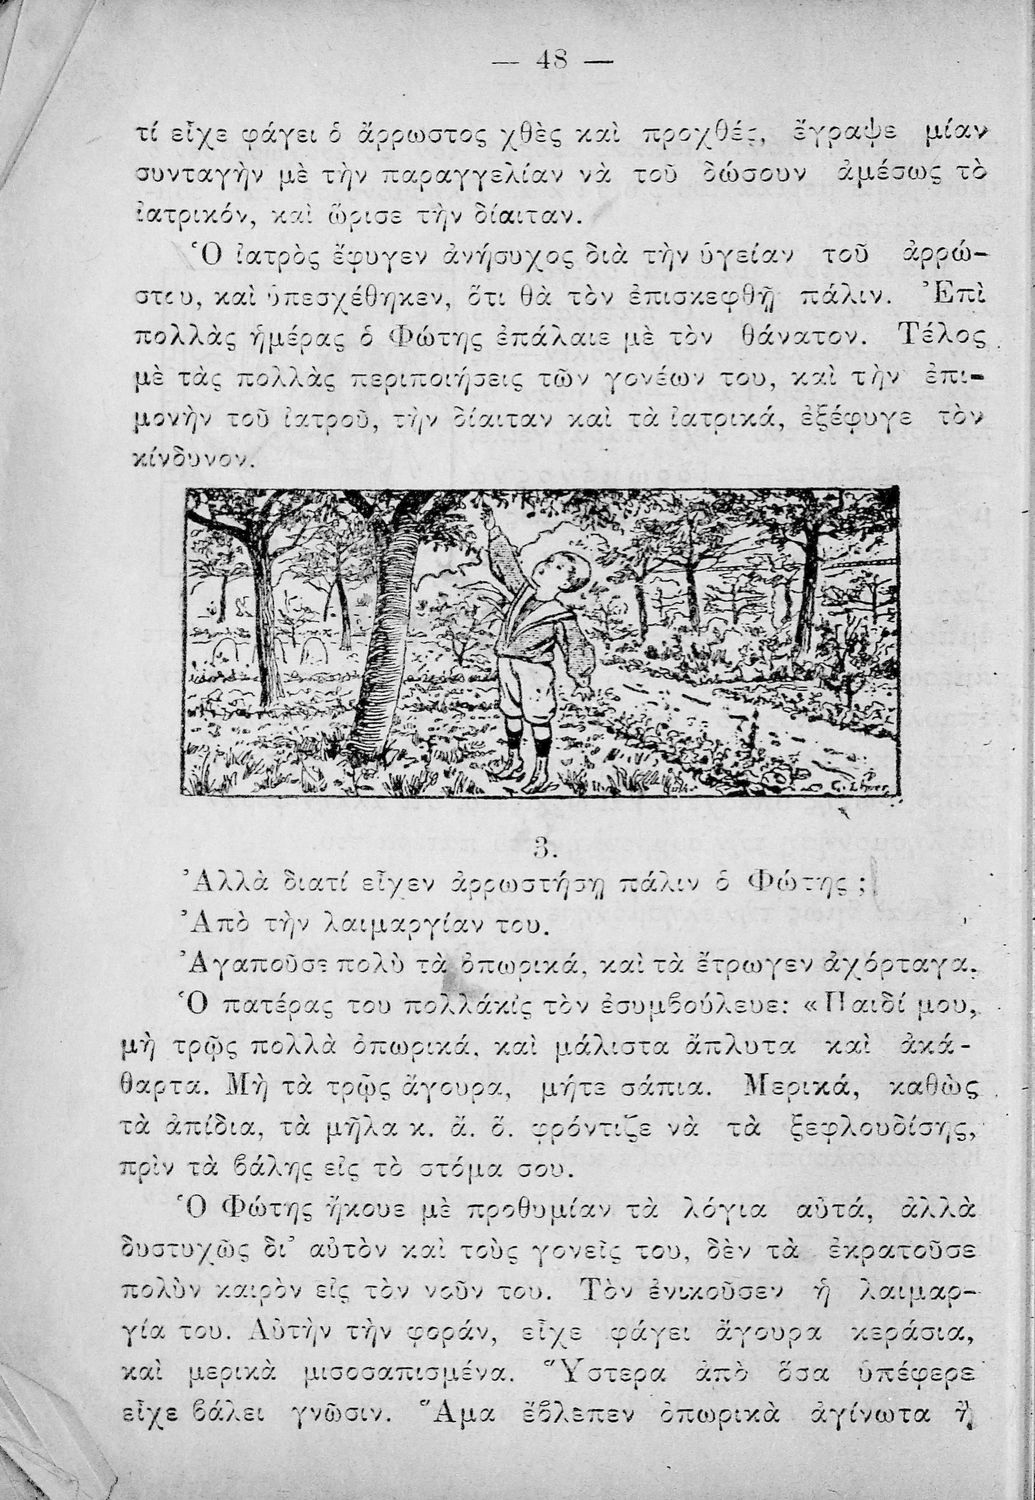 — 48 —
τί εἶχε φάγει ὁ ἄρρωστος χθὲς καὶ προχθές, ἔγραψε μίαν
συνταγὴν μὲ τὴν παραγγελίαν νὰ τοῦ δώσουν ἀμέσως τὸ
ἰατρικόν, καὶ ὥρισε τὴν δίαιταν.
Ὁ ἰατρὸς ἔφυγεν ἀνήσυχος διὰ τὴν ὑγείαν τοῦ ἀρρώ-
στου, καὶ ὑπεσχέθηκεν, ὅτι θὰ τὸν ἐπισκεφθῇ πάλιν. Ἐπὶ
πολλὰς ἡμέρας ὁ Φώτης ἐπάλαιε μὲ τὸν θάνατον. Τέλος
μὲ τὰς πολλὰς περιποιήσεις τῶν γονέων του, καὶ τὴν ἐπι-
μονὴν τοῦ ἰατροῦ, τὴν δίαιταν καὶ τὰ ἰατρικά, ἐξέφυγε τὸν
κίνδυνον.
3.
Ἀλλὰ διατί εἶχεν ἀρρωστήσῃ πάλιν ὁ Φώτης ;
Ἀπὸ τὴν λαιμαργίαν του.
Ἀγαποῦσε πολὺ τὰ ὀπωρικά, καὶ τὰ ἔτρωγεν ἀχόρταγα.
Ὁ πατέρας του πολλάκις τὸν ἐσυμβούλευε: «Παιδί μου,
μὴ τρῷς πολλὰ ὀπωρικά, καὶ μάλιστα ἄπλυτα καὶ ἀκά-
θαρτα. Μὴ τὰ τρῷς ἄγουρα, μήτε σάπια. Μερικά, καθὼς
τὰ ἀπίδια, τὰ μῆλα κ. ἄ. ὅ. φρόντιζε νὰ τὰ ξεφλουδίσῃς,
πρὶν τὰ βάλῃς εἰς τὸ στόμα σου.
Ὁ Φώτης ἤκουε μὲ προθυμίαν τὰ λόγια αὐτά, ἀλλὰ
δυστυχῶς δι' αὐτὸν καὶ τοὺς γονεῖς του, δὲν τὰ ἐκρατοῦσε
πολὺν καιρὸν εἰς τὸν νοῦν του. Τὸν ἐνικοῦσεν ἡ λαιμαρ-
γία του. Αὐτὴν τὴν φοράν, εἶχε φάγει ἄγουρα κεράσια,
καὶ μερικὰ μισοσαπισμένα. Ὕστερα ἀπὸ ὅσα ὑπέφερε
εἶχε βάλει γνῶσιν. Ἅμα ἔβλεπεν ὀπωρικὰ ἀγίνωτα ἢ